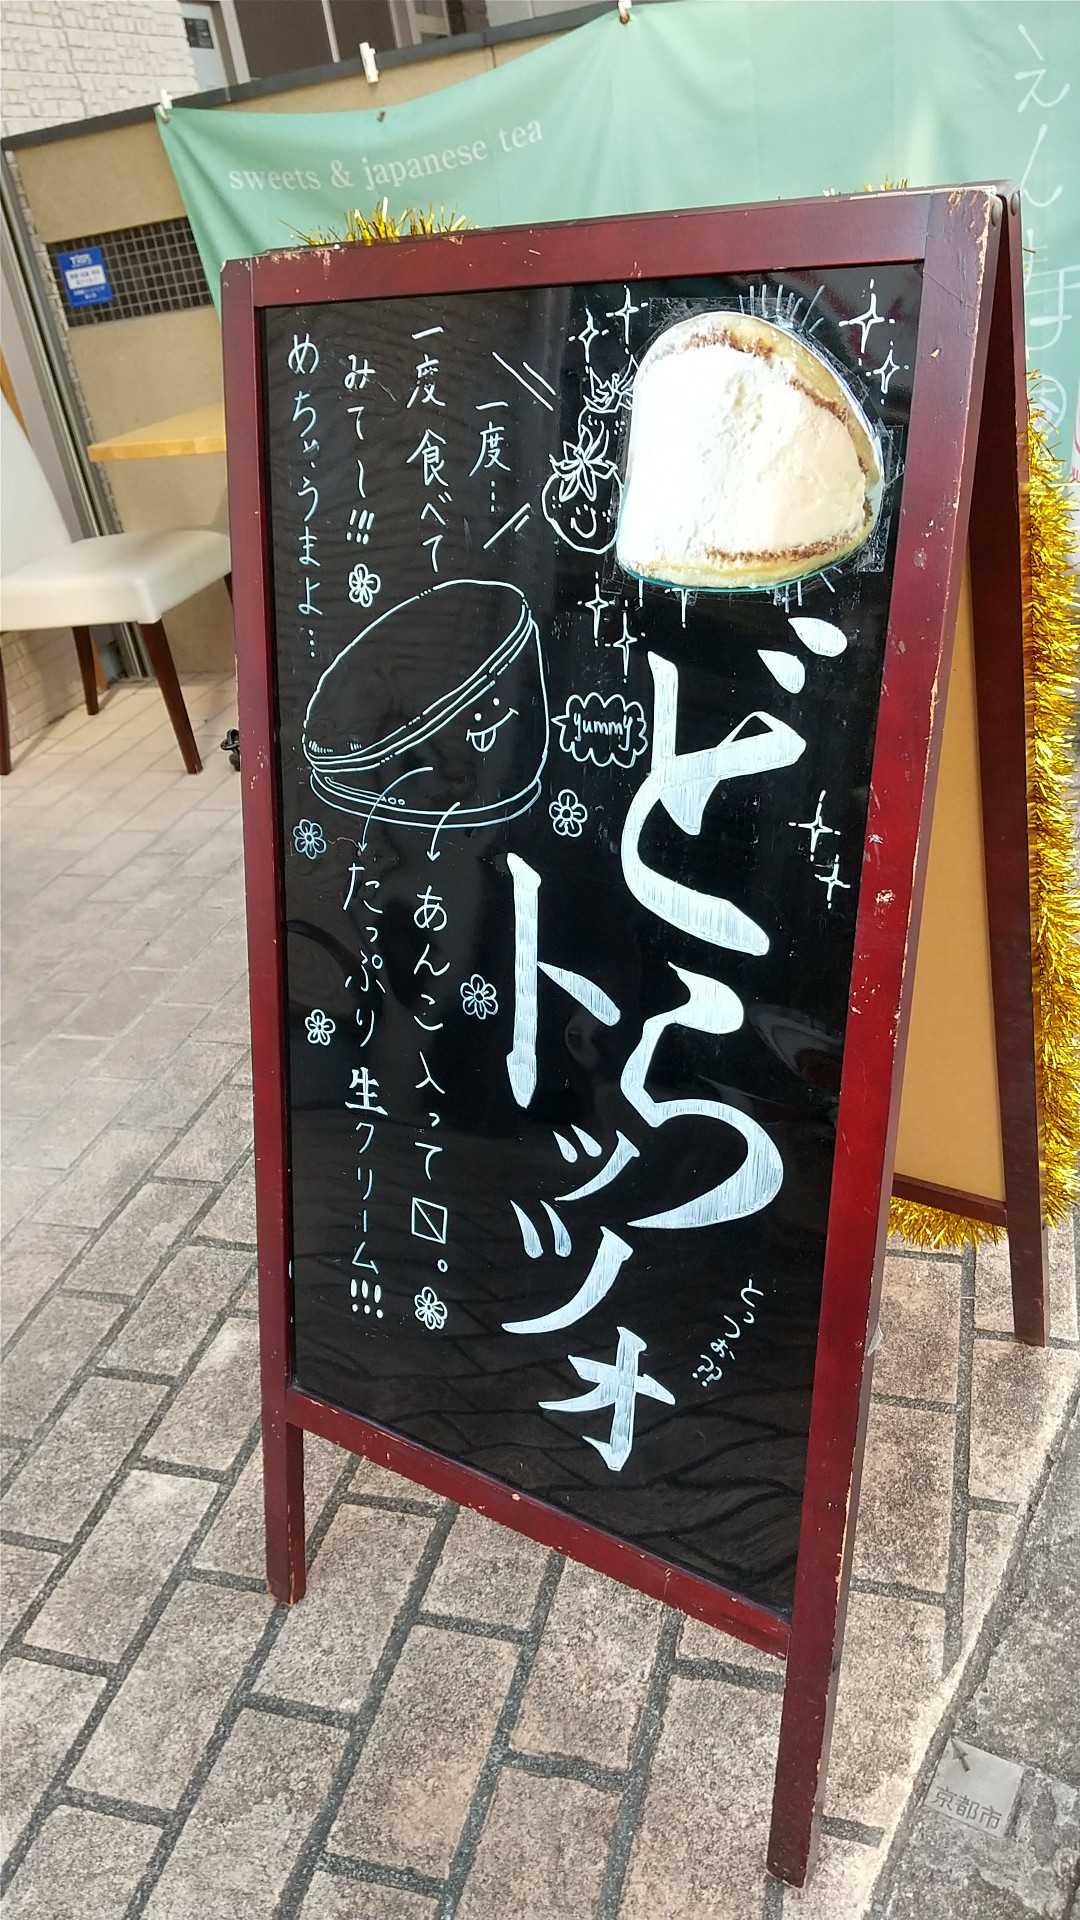 sweets & japanese tea
えん
どら
トッツォ
一度…
一度 食べて
みてー!!!
めちゃうまよ…
yummy
あんこ入って〼。
たっぷり生クリーム!!!
京都市